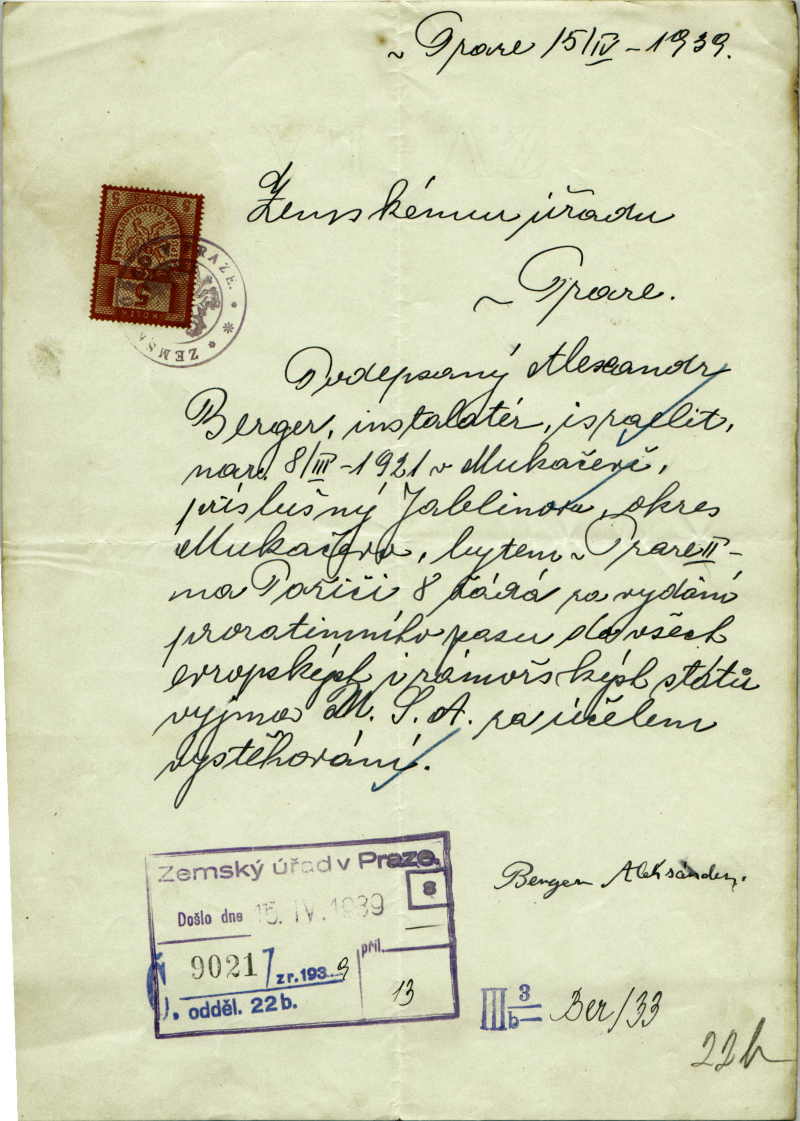 v Praze 15/IV – 1939.
Zemskému úřadu
v Praze.
Podepsaný Alexandr
Berger, instalatér, israelit,
nar. 8/III – 1921 v Mukačevě,
příslušný Jablinova, okres
Mukačevo, bytem v Praze II –
na Poříčí 8 žádá za vydání
prozatimního pasu do všech
evropských i zámořských států
vyjma U. S. A. za účelem
vystěhování.
Berger Aleksander.
5 5
5
KORUN
PRAZE.
ZEMSK
Zemský úřad v Praze.
8
Došlo dne 15. IV. 1939
9021 z r. 1939
příl.
13
odděl. 22 b.
III 3/b – Ber/33
22b